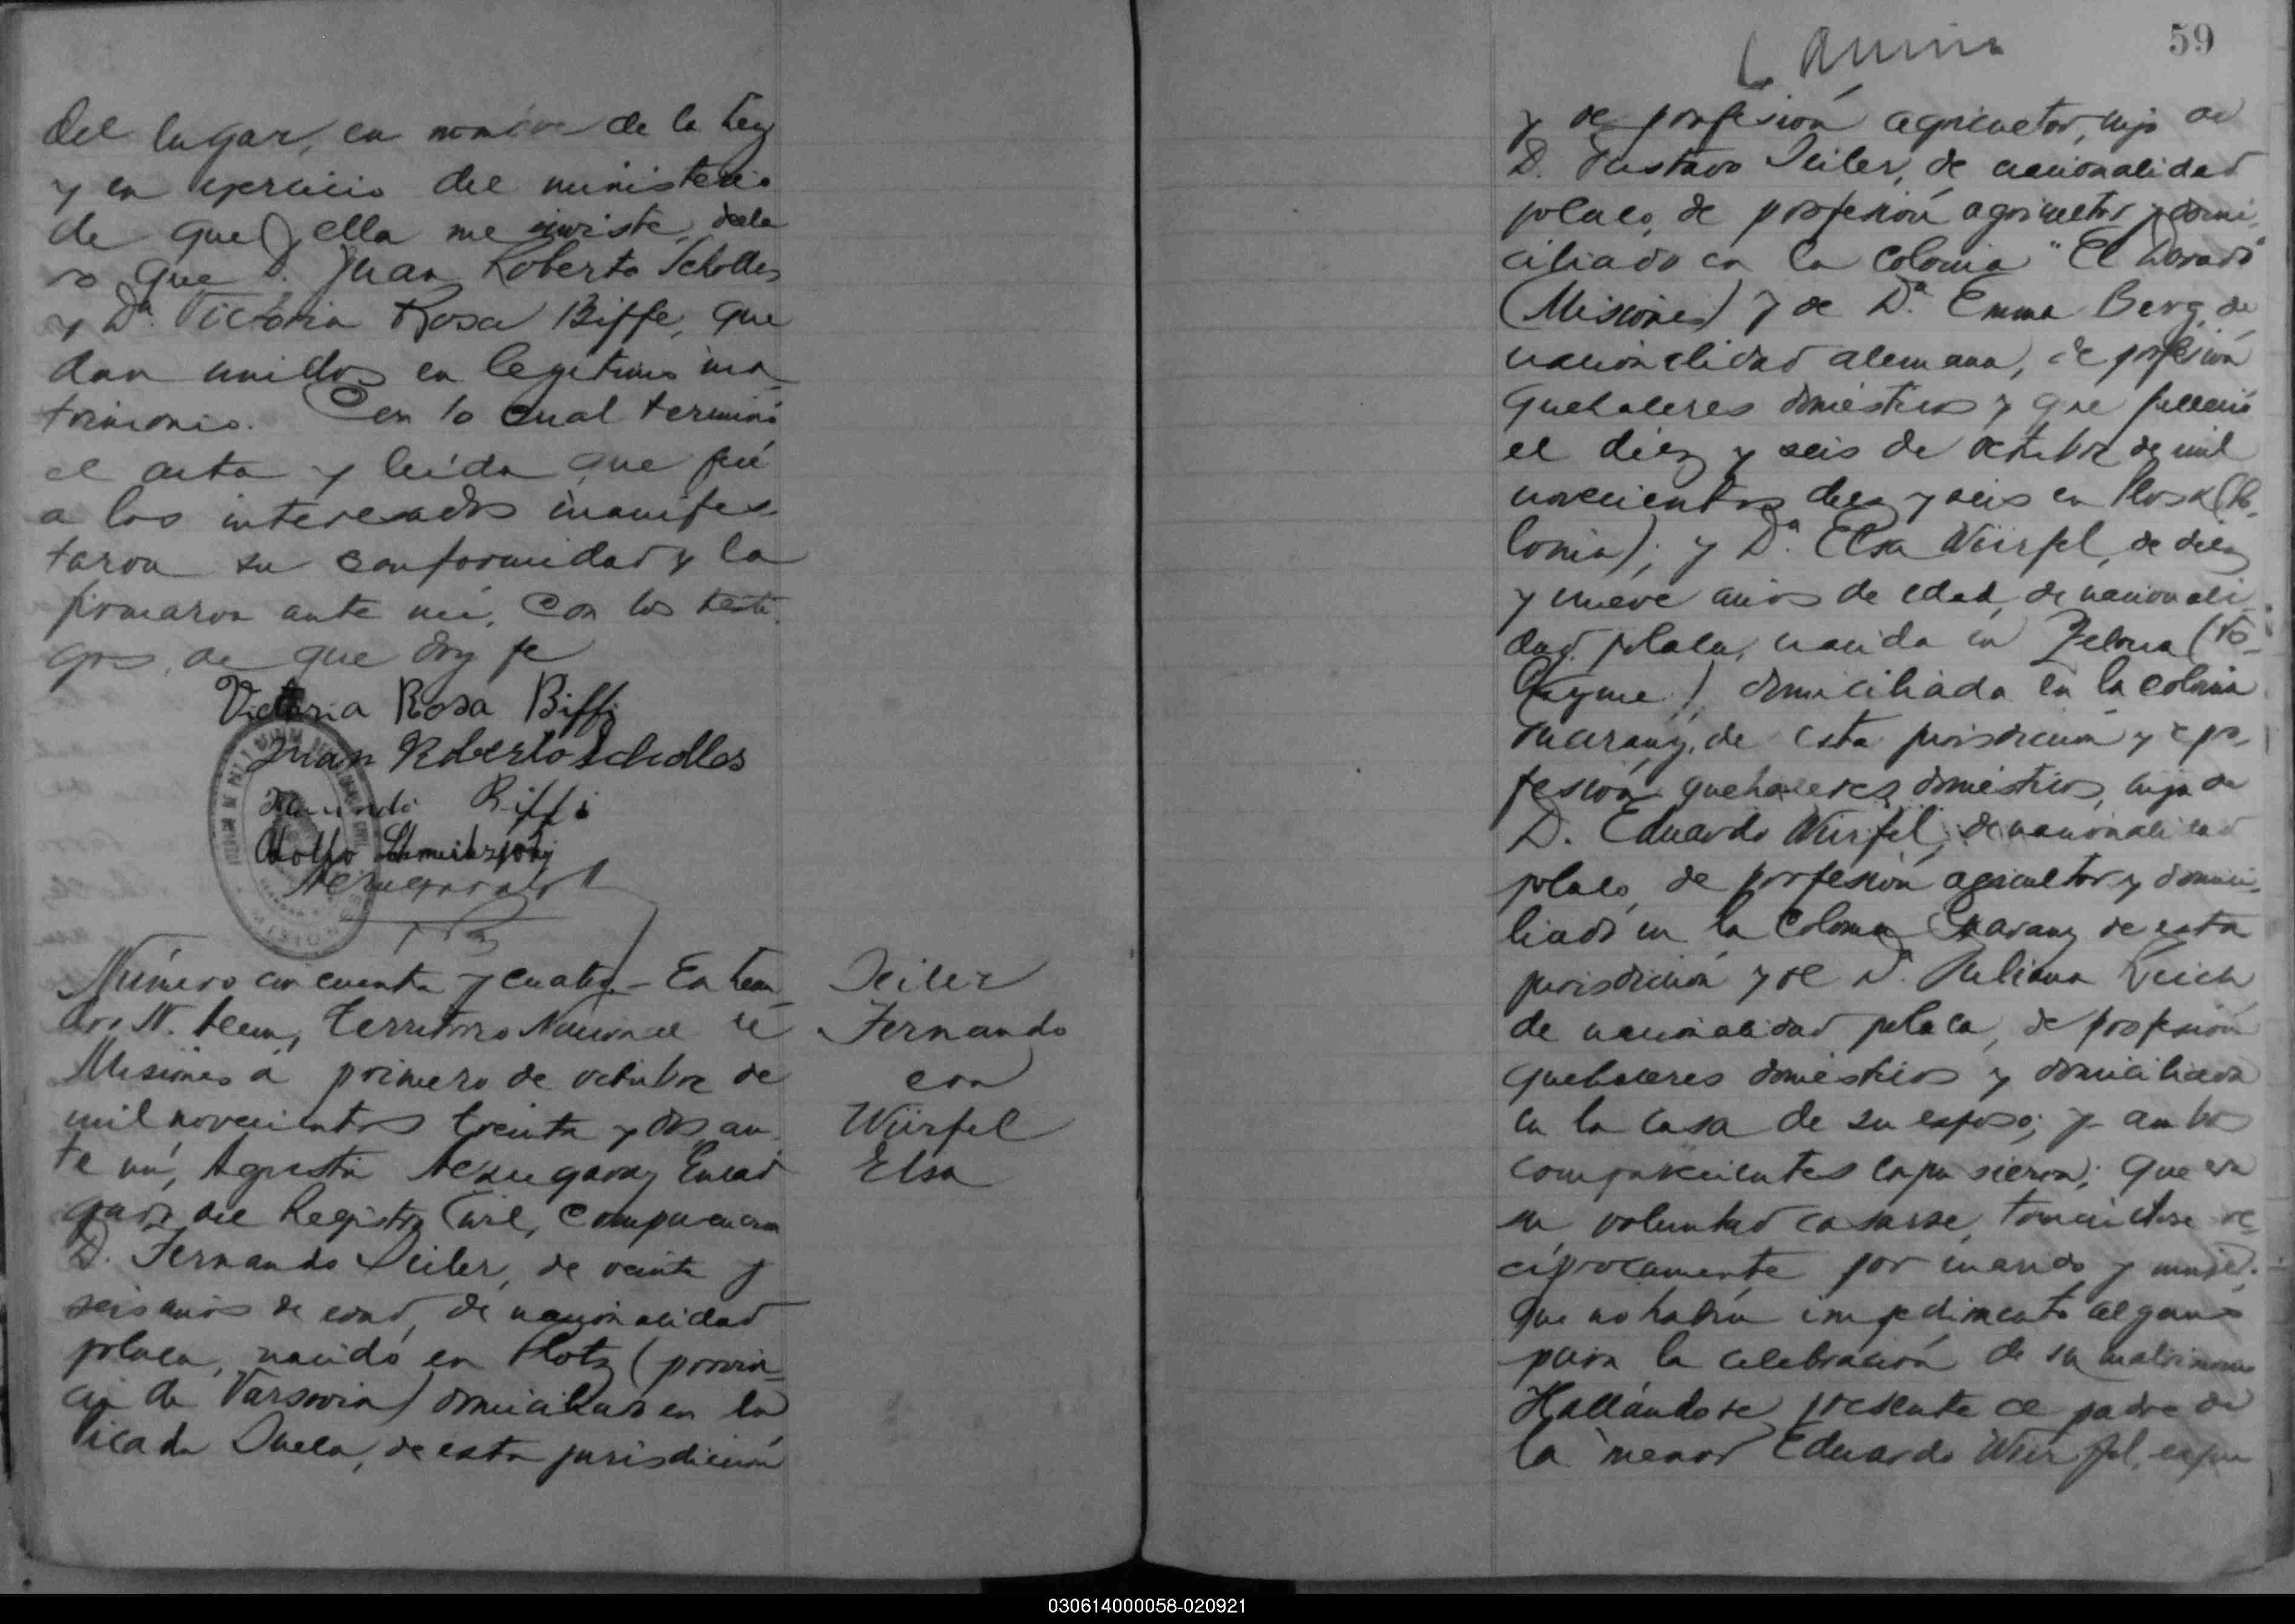 del lugar, en nombre de la Ley
y en ejercicio del ministerio
de que ella me inviste, decla
ro que D. Juan Roberto Scholles
y Dª. Victoria Rosa Biffe, que
dan unidos en legítimo ma
trimonio. Con lo cual terminó
el acta y leída que fué
a los interesados manifes
taron su conformidad y la
firmaron ante mí, con los testi
gos, de que doy fe
Victoria Rosa Biffi
Juan Roberto Scholles
Biffi
Adolfo
Número cincuenta y cuatro.- En Lean
dro N. Alem, Territorio Nacional de
Misiones á primero de octubre de
mil novecientos treinta y dos, an
te mí, Agustin Encar
gado del Registro Civil, comparecieron
D. Fernando Seiler, de veinte y
seis años de edad, de nacionalidad
polaca, nacido en Plotz (provin
cia de Varsovia) domiciliado en la
Picada Suela, de esta jurisdicción
Seiler
Fernando
con
Würfel
Elsa
59
y de profesión agricultor, hijo de
D. Gustavo Seiler, de nacionalidad
polaco, de profesión agricultor y domi
ciliado en la colonia "El Dorado"
(Misiones) y de Dª. Emma Berg, de
nacionalidad alemana, de profesión
quehaceres domésticos y que falleció
el diez y seis de octubre de mil
novecientos diez y seis en (Po
lonia); y Dª. Elsa Würfel, de diez
y nueve años de edad, de nacionali
dad polaca, nacida en Zelona
domiciliada en la colonia
Guarany, de esta jurisdicción y de pro
fesión quehaceres domésticos, hija de
D. Eduardo Würfel, de nacionalidad
polaco, de profesión agricultor y domici
liado en la Colonia Guarany de esta
jurisdicción y de Dª. Juliana Reich
de nacionalidad polaca, de profesión
quehaceres domésticos y domiciliada
en la casa de su esposo; y ambos
comparecientes expusieron; que era
su voluntad casarse, tomándose re
cíprocamente por marido y mujer.
que no había impedimento alguno
para la celebración de su matrimonio
Hallándose presente el padre de
la menor Eduardo Würfel, expu
030614000058-020921